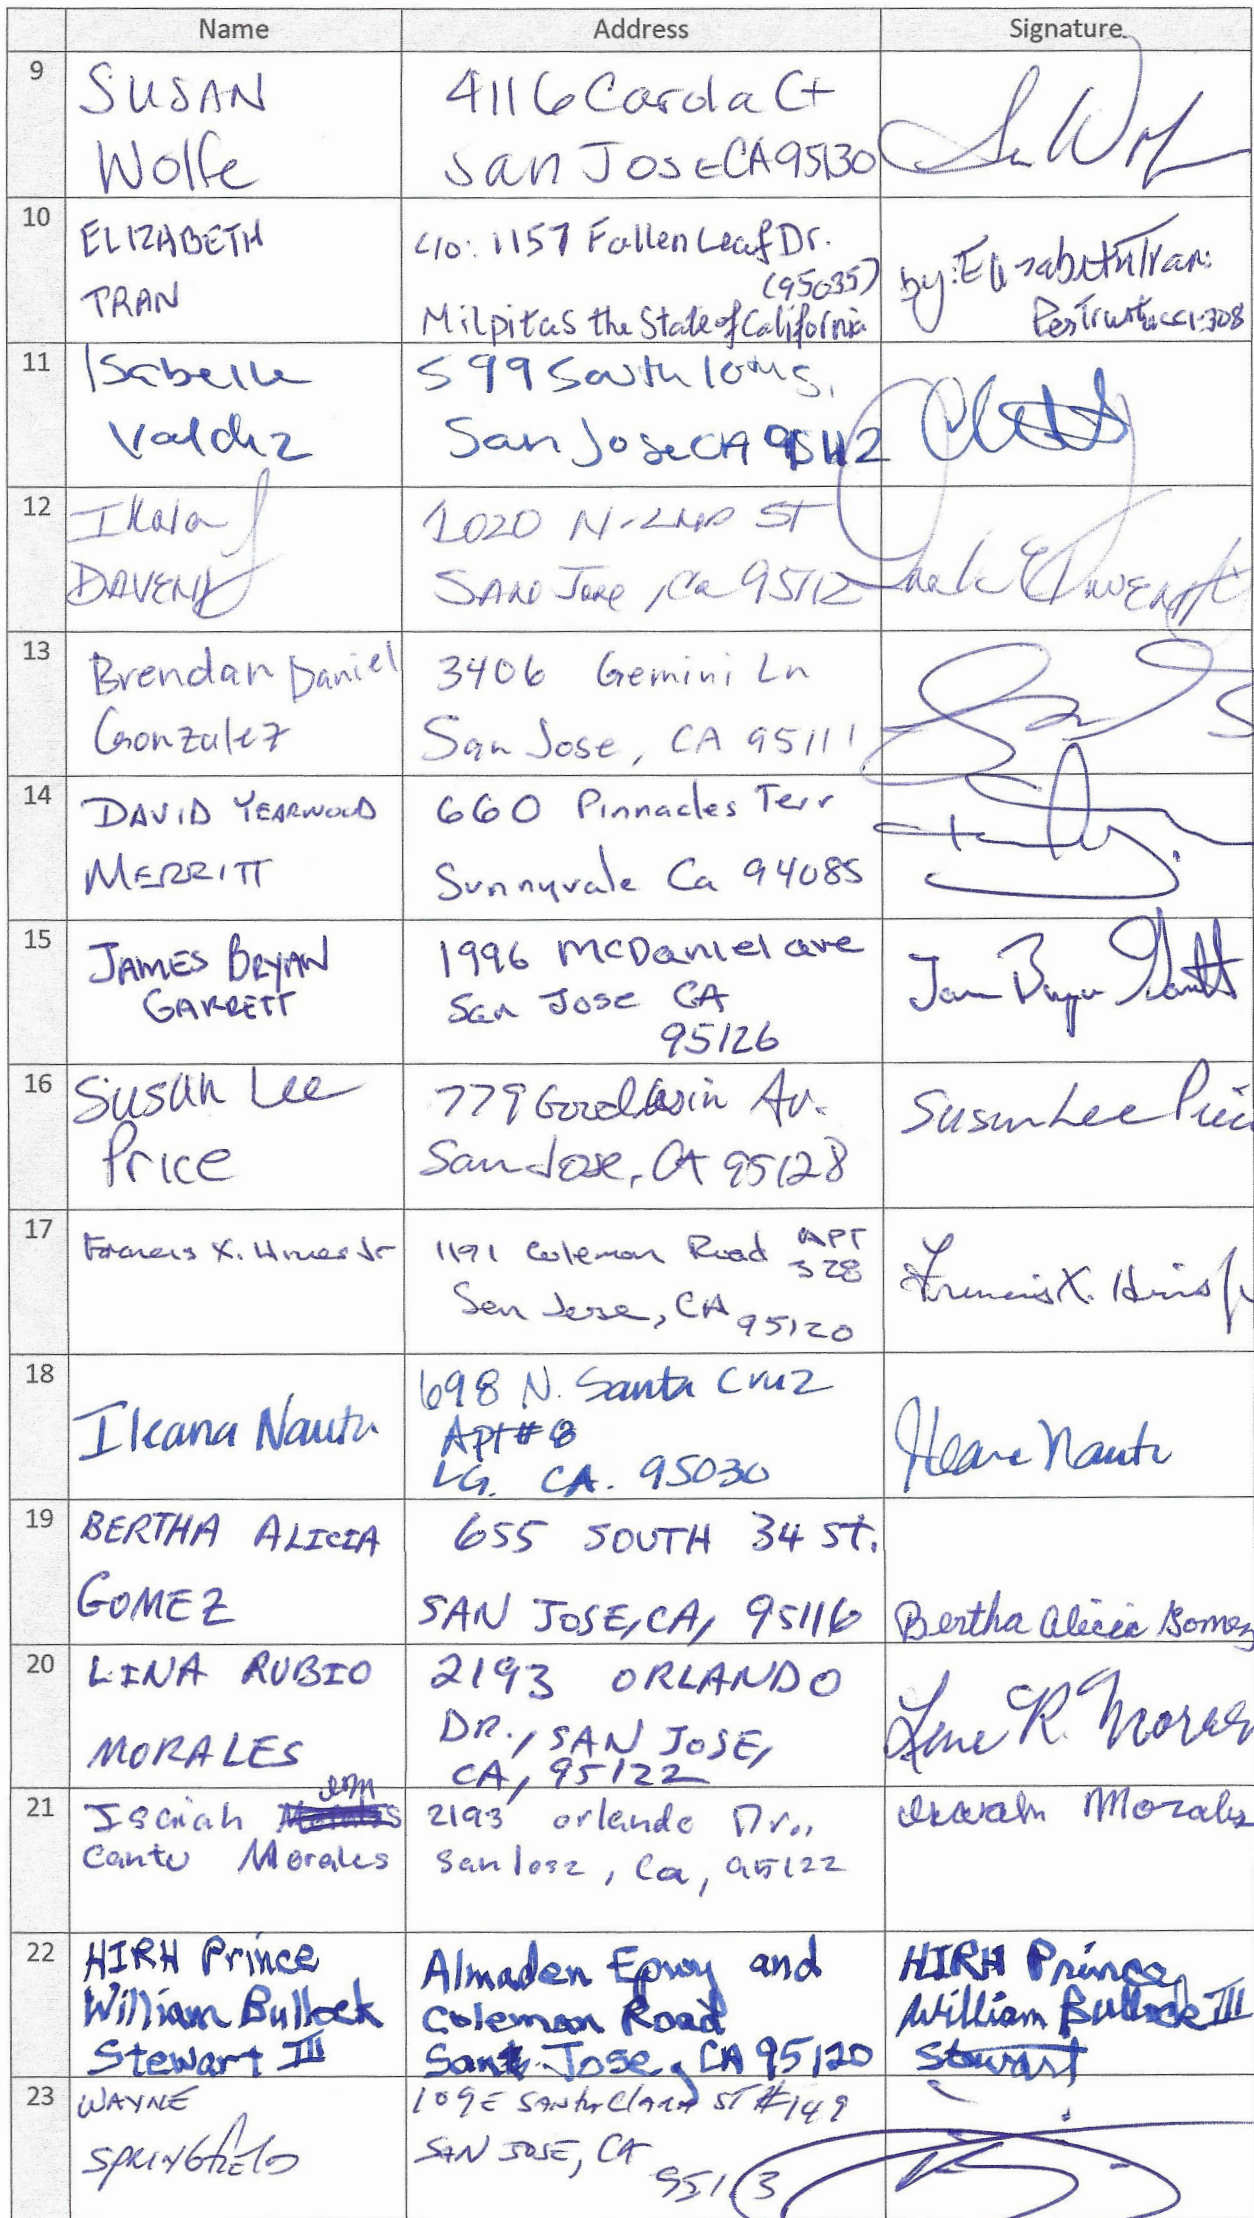 Name Address Signature
9 SUSAN Wolfe
4116 Carola Ct
San Jose CA 95130
10 ELIZABETH TRAN
c/o: 1157 Fallen Leaf Dr.
(95035)
Milpitas the State of California
by: Elizabeth Tran
11 Isabelle Valdez
599 South
San Jose CA 95112
12
1020 N-2ND ST
SAN Jose, Ca 95112
13 Brendan Daniel Gonzalez
3406 Gemini Ln
San Jose, CA 95111
14 DAVID YEARWOOD MERRITT
660 Pinnacles Terr
Sunnyvale Ca 94085
15 JAMES BRYAN GARRETT
1996 McDaniel ave
San Jose CA
95126
16 Susan Lee Price
779 Goodwin Av.
San Jose, CA 95128
Susan Lee Price
17 Francis X. Hines Jr
1191 Coleman Road APT 328
San Jose, CA 95120
Francis X. Hines Jr
18 Ileana Nautu
698 N. Santa Cruz
Apt # 8
LG. CA. 95030
Ileana Nautu
19 BERTHA ALICIA GOMEZ
655 SOUTH 34 St.
SAN JOSE, CA, 95116
Bertha Alicia Gomez
20 LINA RUBIO MORALES
2193 ORLANDO
DR., SAN JOSE,
CA, 95122
Lina R. Morales
21 Isaiah Cantu Morales
2193 orlando Dr.,
San Jose, Ca, 95122
Isaiah Morales
22 HIRH Prince William Bullock Stewart III
Almaden Epwy and
Coleman Road
San Jose, CA 95120
HIRH Prince
William Bullock III
Stewart
23 WAYNE SPRINGFIELD
109 E SANTA CLARA ST #149
SAN JOSE, CA
95113